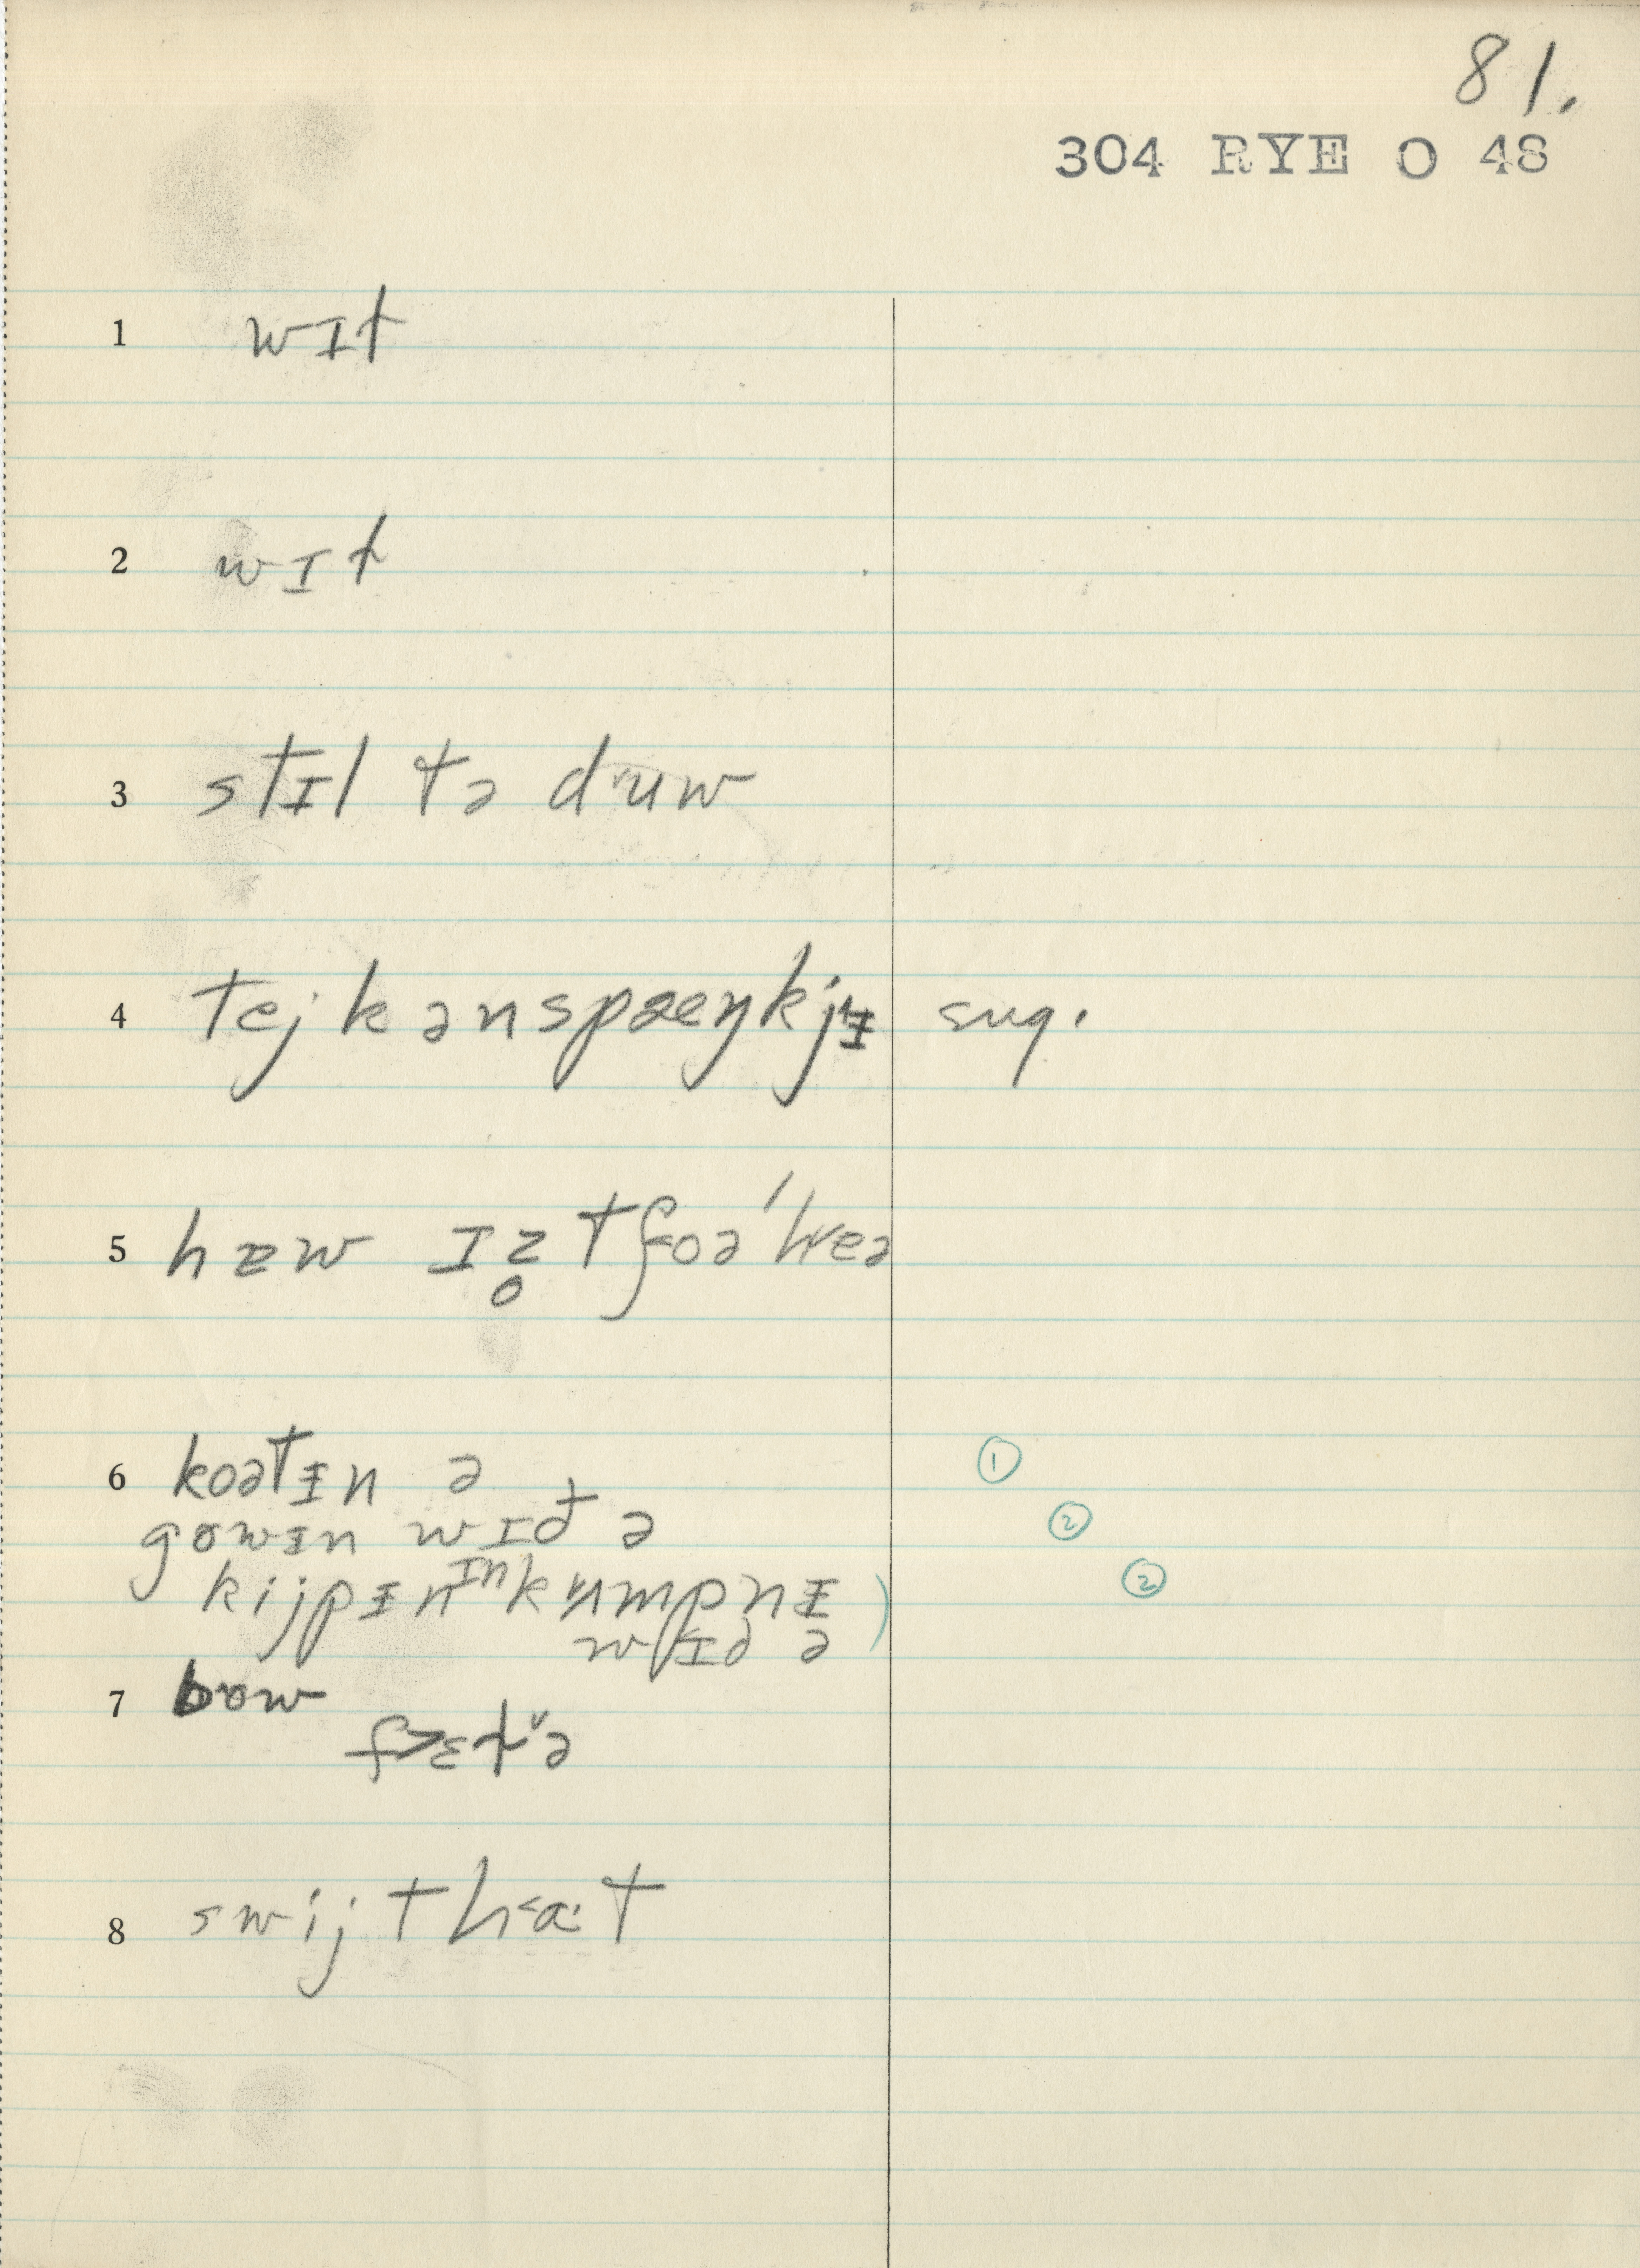 81.
304 RYE O 48
1 wɪt
2 wɪt
3 stɪl tə dʉw
4 tejkənspæŋkjɨ sug.
5 hæw ɪz̥ tʃoə'hweə
6 koətɨn ə ①
gowɨn wɪđ ə ②
kijpɨn ɪn kʌmpnɨ ) ②
wɪđ ə
7 bow
f>ɛt̬ə
8 swijtha:t